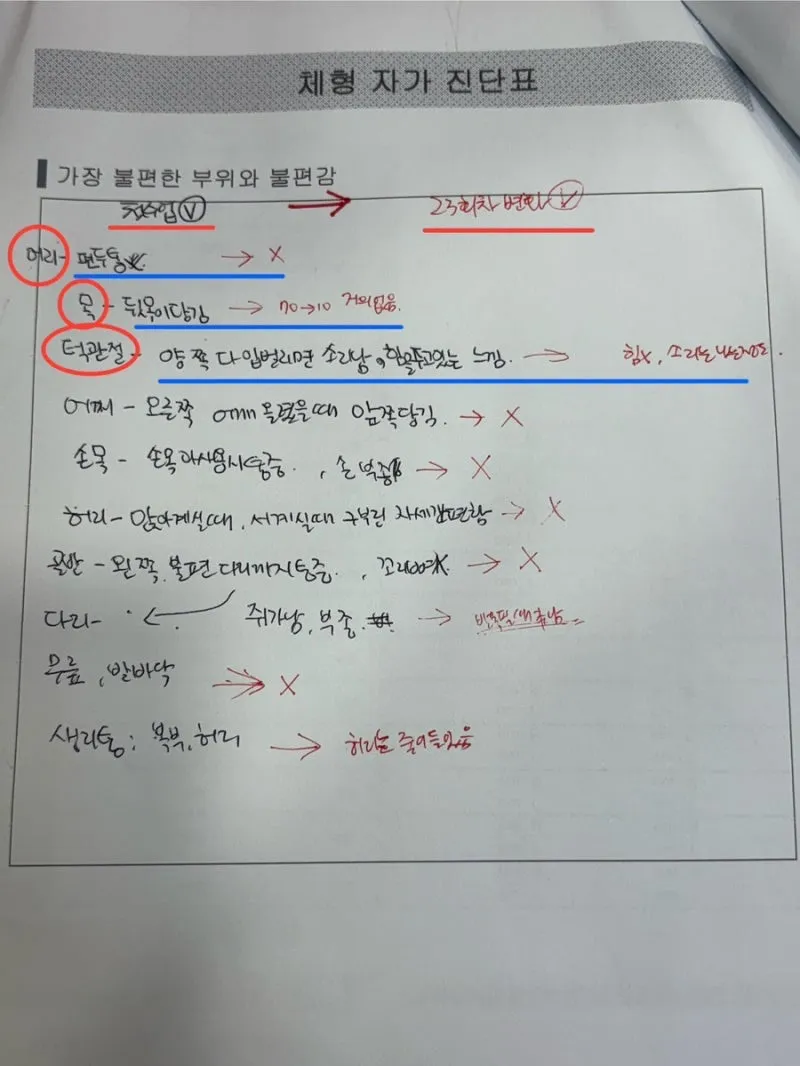 체형 자가 진단표
가장 불편한 부위와 불편감
첫수업 V → 23회차 변화 V
머리 - 편두통 → X
목 - 뒷목이 당김 → 70→10 거의없음.
턱관절 - 양쪽 다 입벌리면 소리남, 힘을주고있는 느낌. → 힘X, 소리는
어깨 - 오른쪽 어깨 올렸을때 앞쪽당김. → X
손목 - 손목 과사용시 통증. , 손 부종 → X
허리 - 앉아계실때, 서계실때 구부린 자세감편함 → X
골반 - 왼쪽, 불편 다리까지 통증. , → X
다리 - ← 쥐가남, 부종. →
무릎, 발바닥 → X
생리통 ; 복부, 허리 → 허리는 줄어들었음